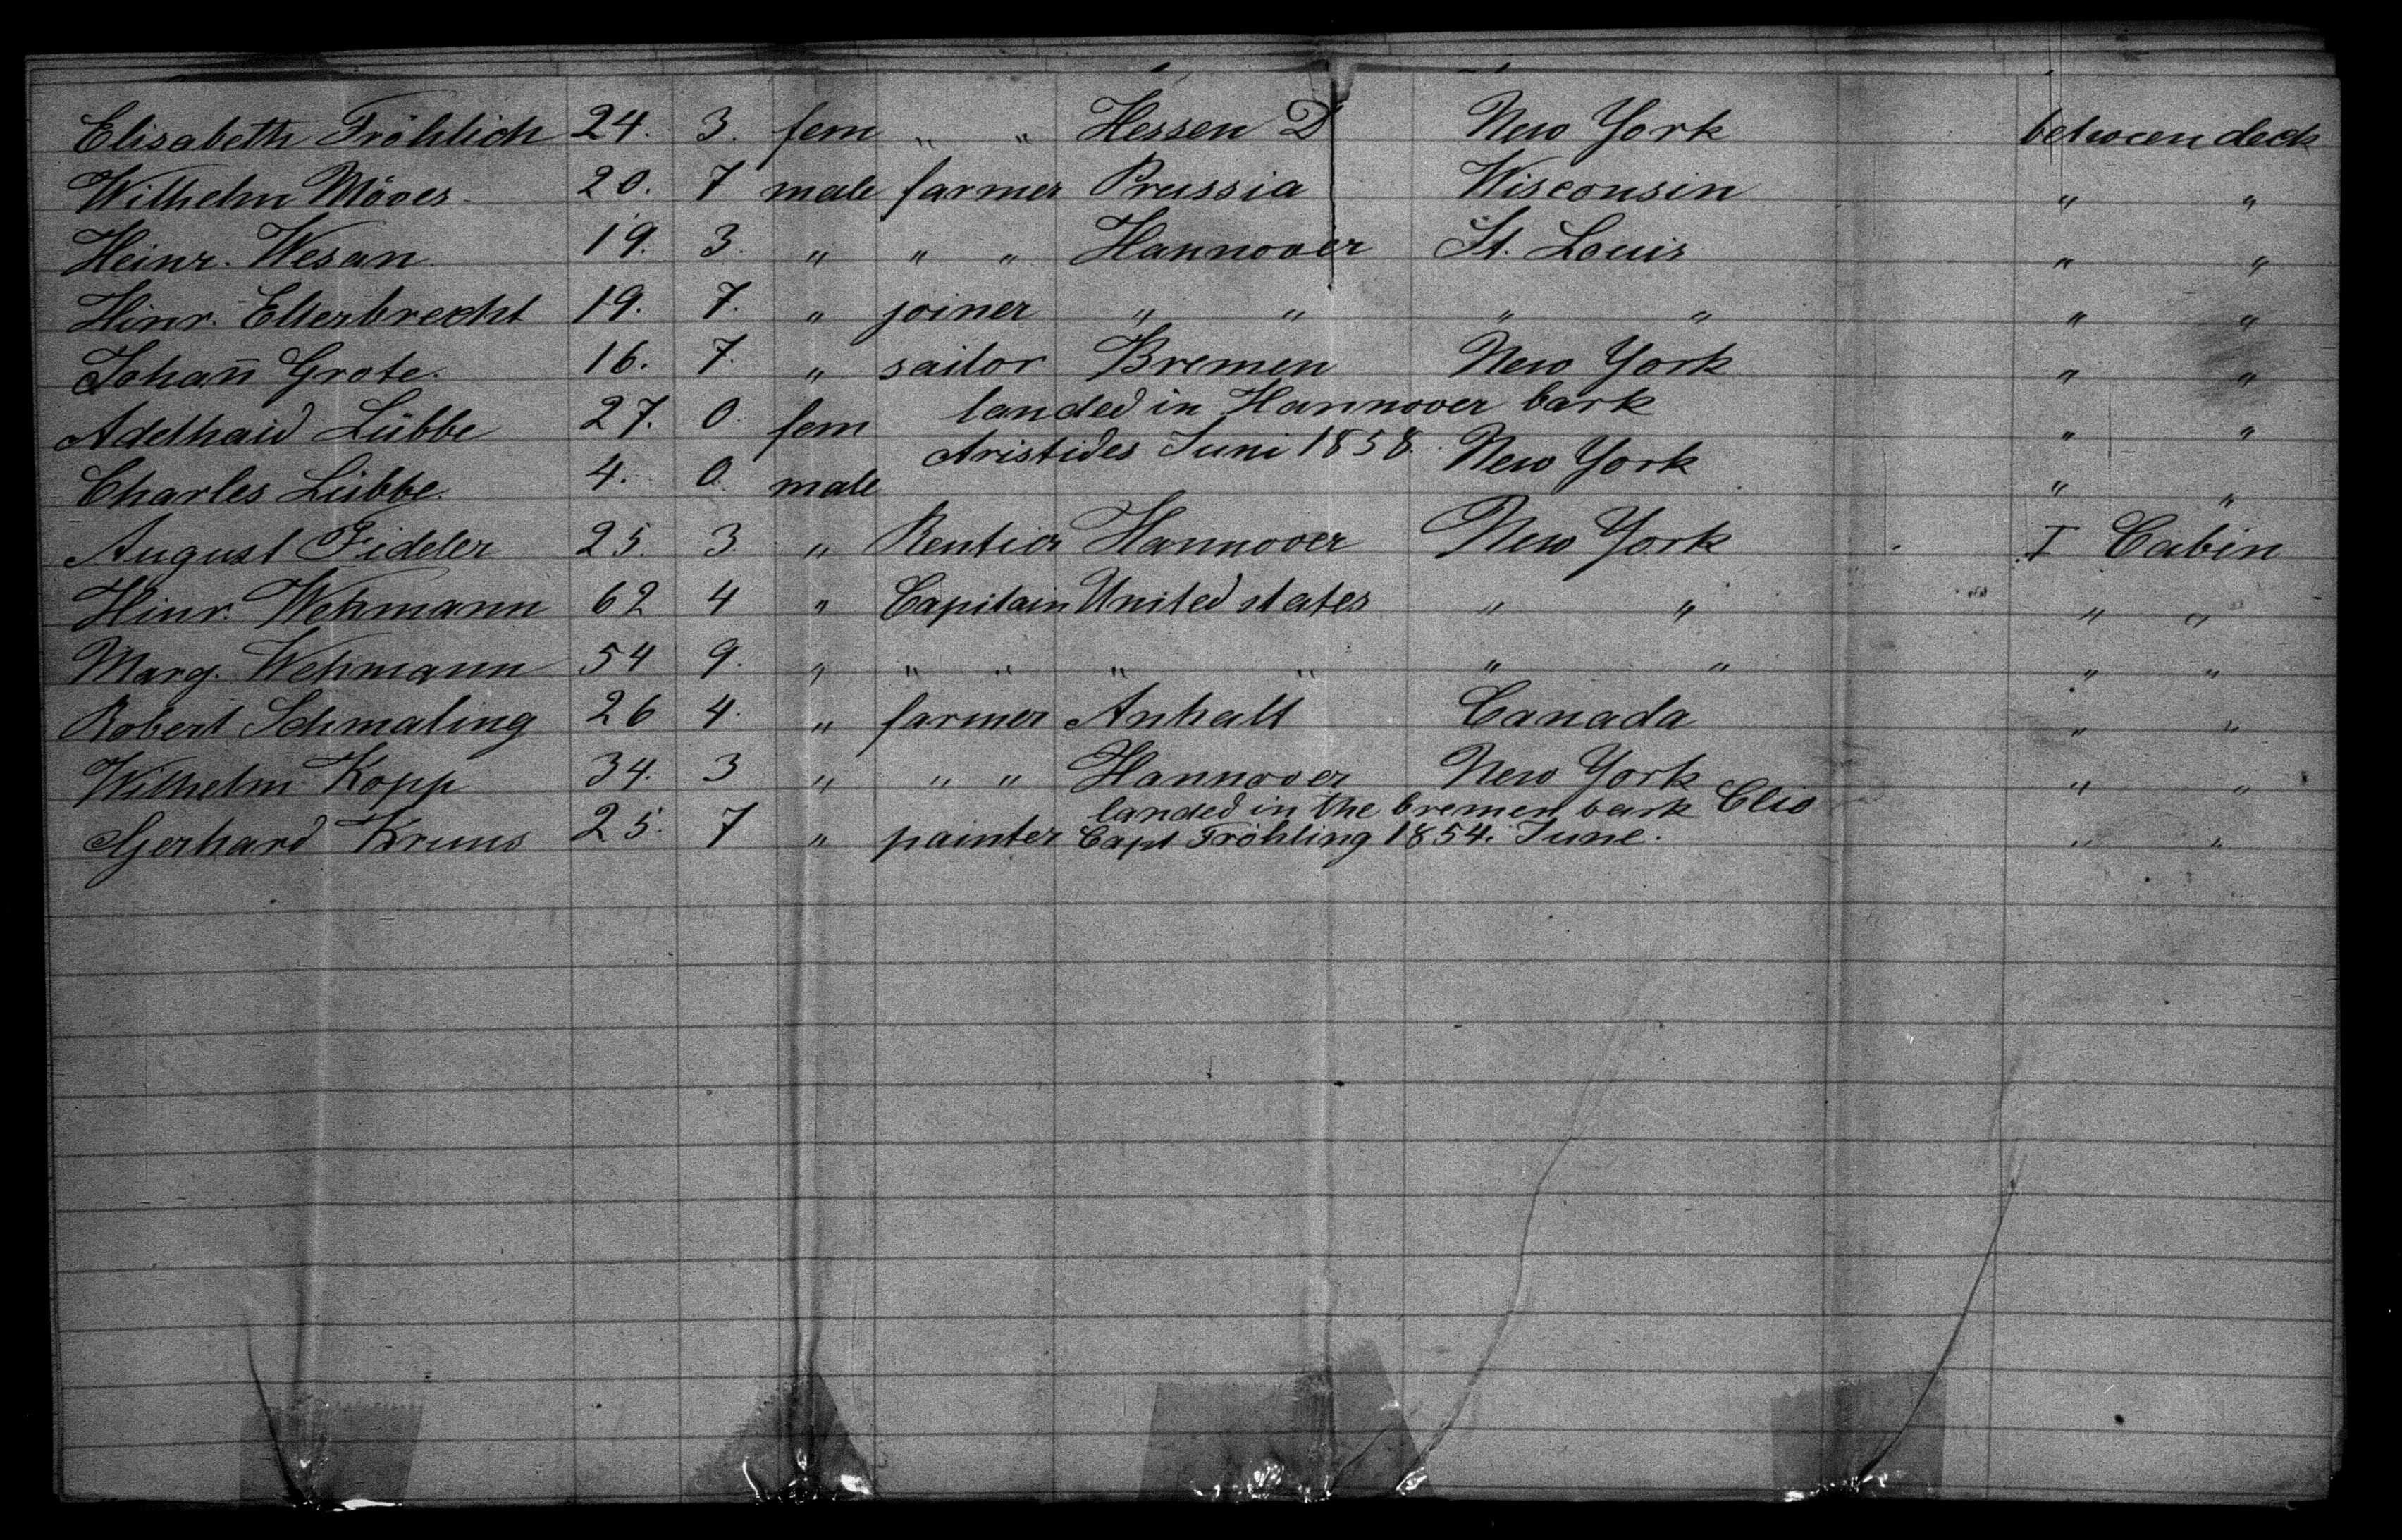 Elisabeth Fröhlich 24. 3. fem " " Hessen D New York between deck
Wilhelm Möves 20. 7 male farmer Prussia Wisconsin " "
Heinr. Wesan 19. 3. " " " Hannover St. Louis " "
Hinr. Ellerbrecht 19. 7. " joiner " " " " " "
Johan̄ Grote. 16. 7. " sailor Bremen New York " "
Adelhaid Lübbe 27. 0. fem landed in Hannover bark " "
Aristides Juni 1858. New York
Charles Lübbe. 4. 0. male " "
August Fideler 25. 3. " Rentier Hannover New York I Cabin
Hinr. Wehmann 62 4 " Capitain United states " " " "
Marg. Wehmann 54 9. " " " " " " " " "
Robert Schmaling 26 4. " farmer Anhalt Canada " "
Wilhelm Kopp 34. 3 " " " Hannover New York " "
landed in the bremen bark Clio
Gerhard Kruns 25. 7 " painter Capt Fröhling 1854. June. " "